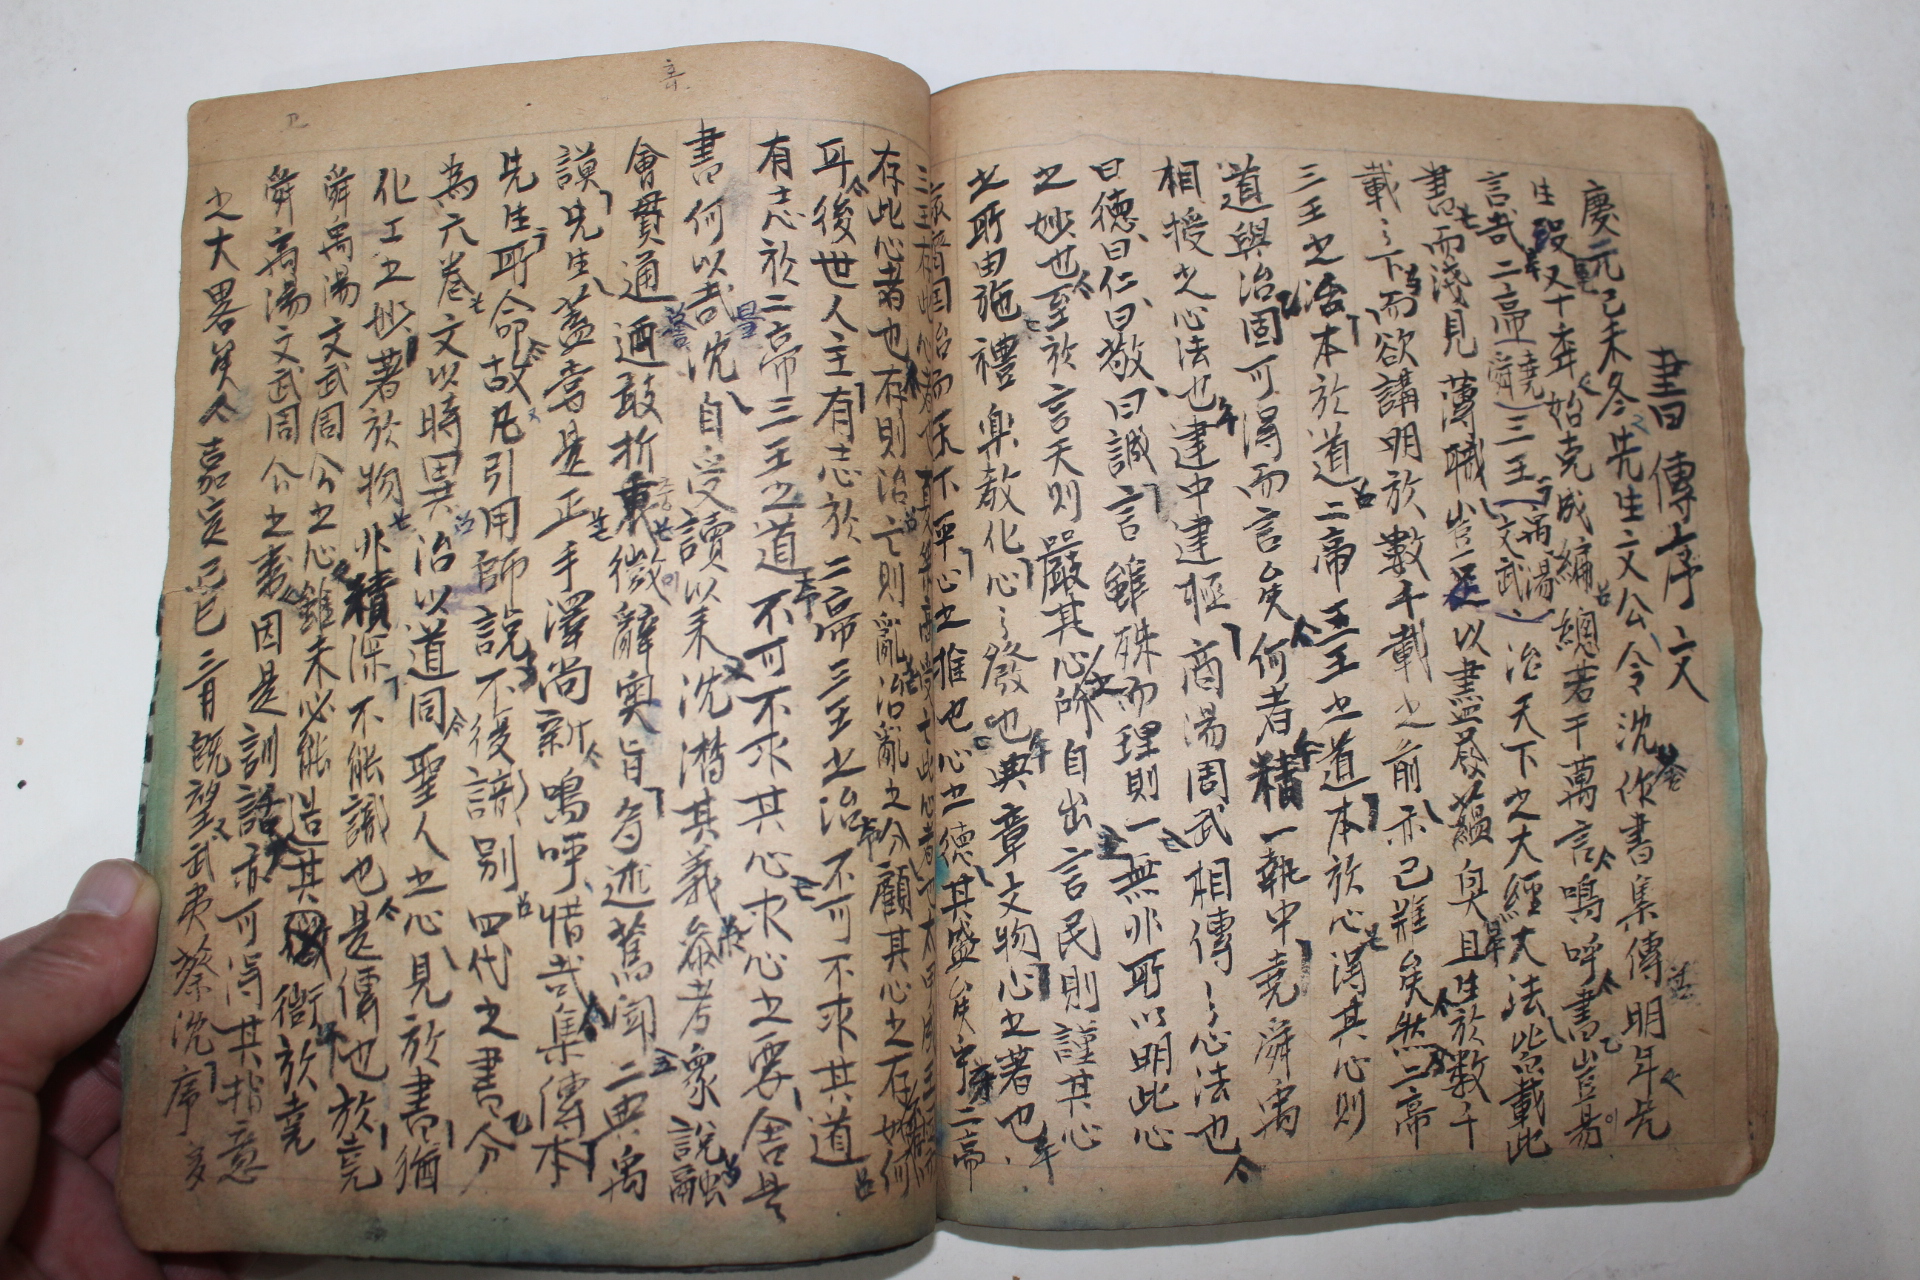 書傳序文
慶元己未冬先生文公令沈作書集傳明年先
生殁又十年始克成編總若干萬言鳴呼書豈易
言哉二帝堯舜三王禹湯文武治天下之大經大法皆載此
書而淺見薄職豈足以盡發蘊奧且生於數千
載〻下而欲講明於數千載之前亦已難矣然二帝
三王之治本於道二帝三王之道本於心得其心則
道與治固可得而言矣何者精一執中堯舜禹
相授之心法也建中建極商湯周武相傳〻心法也
曰德曰仁曰敬曰誠言雖殊而理則一無非所以明此心
之妙也至於言天則嚴其心之所自出言民則謹其心
之所由施禮樂敎化心〻發也典章文物心之著也
家齊國治而天下平心之推也心之德其盛矣乎二帝
三王存此心者也夏桀商受亡此心者也太甲成王困而
存此心者也存則治亡則亂治亂之分顧其心之存如何
耳後世人主有志於二帝三王之治不可不求其道
有志於二帝三王之道不可不求其心求心之要舍是
書何以哉沈自受讀以来沈潛其義叅考衆說融
會貫通迺敢折衷微辭奧旨多述舊聞二典禹
謨先生蓋嘗是正手澤尚新鳴呼惜哉集傳本
先生所命故凡引用師說不復識別四代之書分
為六卷文以時異治以道同聖人之心見於書猶
化工之妙著於物非精深不能識也是傳也於堯
舜禹湯文武周公之心雖未必能造其微於堯
舜禹湯文武周公之書因是訓詁亦可得其指意
之大畧矣嘉定己巳三月旣望武夷蔡沈序